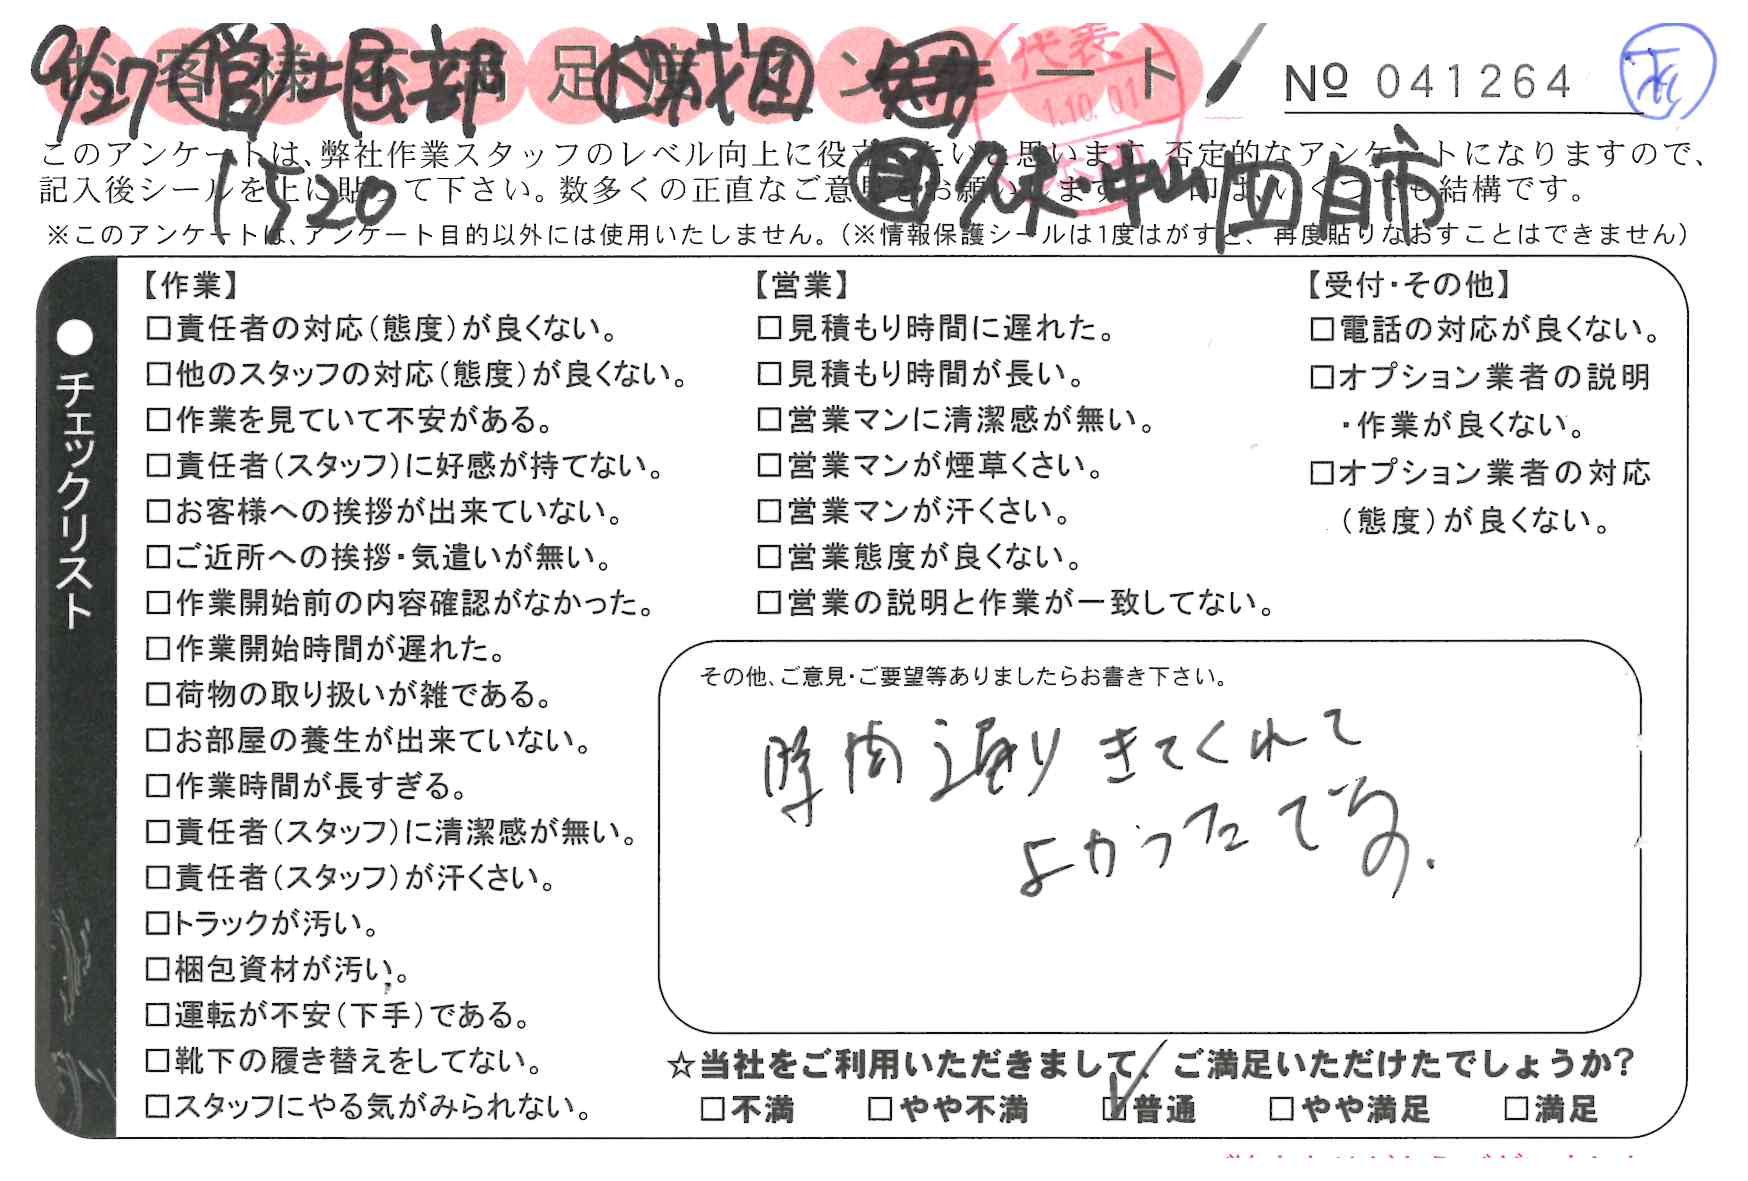 お客様不満足度アンケート
9/27 営 社 部 成田
代表
1.10.01
№ 041264
このアンケートは、弊社作業スタッフのレベル向上に役立てたいと思います。否定的なアンケートになりますので、
記入後シールを上に貼って下さい。数多くの正直なご意見をお願いします。 印は、いくつでも結構です。
1520
中山 市
※このアンケートは、アンケート目的以外には使用いたしません。(※情報保護シールは1度はがすと、再度貼りなおすことはできません)
●チェックリスト
【作業】
□責任者の対応(態度)が良くない。
□他のスタッフの対応(態度)が良くない。
□作業を見ていて不安がある。
□責任者(スタッフ)に好感が持てない。
□お客様への挨拶が出来ていない。
□ご近所への挨拶・気遣いが無い。
□作業開始前の内容確認がなかった。
□作業開始時間が遅れた。
□荷物の取り扱いが雑である。
□お部屋の養生が出来ていない。
□作業時間が長すぎる。
□責任者(スタッフ)に清潔感が無い。
□責任者(スタッフ)が汗くさい。
□トラックが汚い。
□梱包資材が汚い。
□運転が不安(下手)である。
□靴下の履き替えをしてない。
□スタッフにやる気がみられない。
【営業】
□見積もり時間に遅れた。
□見積もり時間が長い。
□営業マンに清潔感が無い。
□営業マンが煙草くさい。
□営業マンが汗くさい。
□営業態度が良くない。
□営業の説明と作業が一致してない。
【受付・その他】
□電話の対応が良くない。
□オプション業者の説明
・作業が良くない。
□オプション業者の対応
(態度)が良くない。
その他、ご意見・ご要望等ありましたらお書き下さい。
時間通りきてくれて
よかったです。
☆当社をご利用いただきまして、ご満足いただけたでしょうか?
□不満 □やや不満 ☑普通 □やや満足 □満足